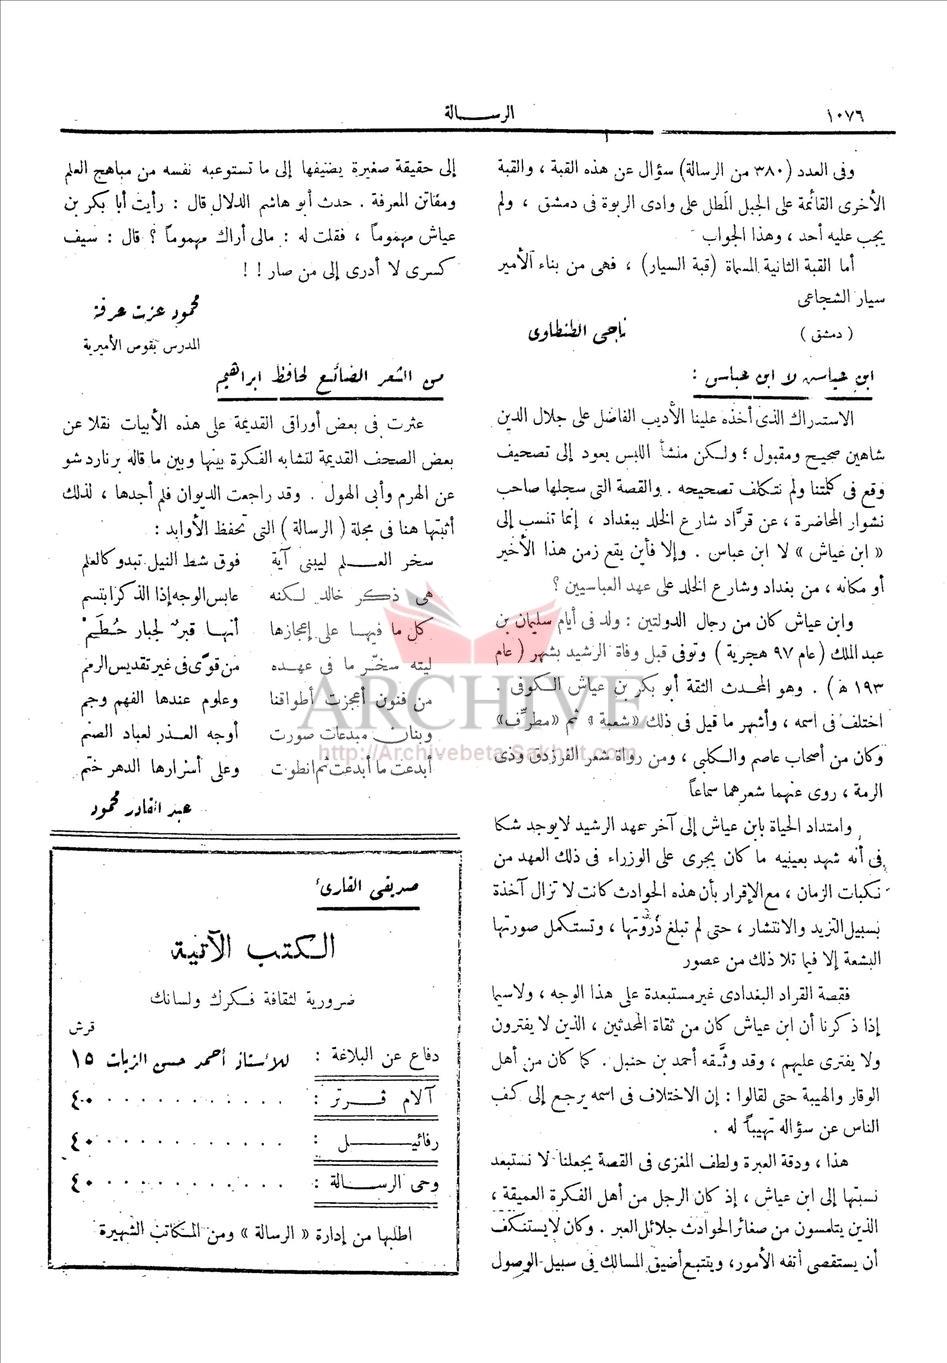 ١٠٧٦
الرسالة
وفى العدد (٣٨٠ من الرسالة) سؤال عن هذه القبة ، والقبة
الأخرى القائمة على الجبل المطل على وادى الربوة فى دمشق ، ولم
يجب عليه أحد ، وهذا الجواب
أما القبة الثانية المسماة (قبة السيار) ، فهى من بناء الأمير
سيار الشجاعى
( دمشق )
ناجى الطنطاوى
ابن عياش لا ابن عباس :
الاستدراك الذى أخذه علينا الأديب الفاضل على جلال الدين
شاهين صحيح ومقبول ؛ ولكن منشأ اللبس يعود إلى تصحيف
وقع فى كلمتنا ولم نتكلف تصحيحه . والقصة التى سجلها صاحب
نشوار المحاضرة ، عن قرَّاد شارع الخلد ببغداد ، إنما تنسب إلى
« ابن عياش » لا ابن عباس . وإلا فأين يقع زمن هذا الأخير
أو مكانه ، من بغداد وشارع الخلد على عهد العباسيين ؟
وابن عياش كان من رجال الدولتين : ولد فى أيام سليمان بن
عبد الملك (عام ٩٧ هجرية ) وتوفى قبل وفاة الرشيد بشهر ( عام
١٩٣ هـ ) . وهو المحدث الثقة أبو بكر بن عياش الكوفى .
اختلف فى اسمه ، وأشهر ما قيل فى ذلك «شعبة » ثم «مطرِّف»
وكان من أصحاب عاصم والكلبى ، ومن رواة شعر الفرزدق وذى
الرمة ، روى عنهما شعرهما سماعاً
وامتداد الحياة بابن عياش إلى آخر عهد الرشيد لا يوجد شكا
فى أنه شهد بعينيه ما كان يجرى على الوزراء فى ذلك العهد من
نكبات الزمان ، مع الإقرار بأن هذه الحوادث كانت لا تزال آخذة
بسبيل التزيد والانتشار ، حتى لم تبلغ ذُروتها ، وتستكمل صورتها
البشعة إلا فيما تلا ذلك من عصور
فقصة القراد البغدادى غير مستبعدة على هذا الوجه ، ولاسيما
إذا ذكرنا أن ابن عياش كان من ثقاة المحدثين ، الذين لا يفترون
ولا يفترى عليهم ، وقد وثَّقه أحمد بن حنبل . كما كان من أهل
الوقار والهيبة حتى لقالوا : إن الاختلاف فى اسمه يرجع إلى كف
الناس عن سؤاله تهيباً له .
هذا ، ودقة العبرة ولطف المغزى فى القصة يجعلنا لا نستبعد
نسبتها إلى ابن عياش ، إذ كان الرجل من أهل الفكرة العميقة ،
الذين يتلمسون من صغائر الحوادث جلائل العبر . وكان لا يستنكف
أن يستقصى أتفه الأمور، ويتتبع أضيق المسالك فى سبيل الوصول
إلى حقيقة صغيرة يضيفها إلى ما تستوعبه نفسه من مباهج العلم
ومفاتن المعرفة . حدث أبو هاشم الدلال قال : رأيت أبا بكر بن
عياش مهموماً ، فقلت له : مالى أراك مهموماً ؟ قال : سيف
كسرى لا أدرى إلى من صار ! !
محمود عزت عرفة
المدرس بقوص الأميرية
من الشعر الضائع لحافظ ابراهيم
عثرت فى بعض أوراقى القديمة على هذه الأبيات نقلا عن
بعض الصحف القديمة لتشابه الفكرة بينها وبين ما قاله برنارد شو
عن الهرم وأبى الهول . وقد راجعت الديوان فلم أجدها ، لذلك
أثبتها هنا فى مجلة ( الرسالة ) التى تحفظ الأوابد :
سخر العـــلم ليبنى آية فوق شط النيل تبدو كالعلم
هى ذكر خالد لكنه عابس الوجه إذا الذكر ابتسم
كل ما فيها على إعجازها أنها قبرٌ لجبار حُطَمْ
ليته سخّر ما فى عهـده من قوًى فى غير تقديس الرمم
من فنون أعجزت أطواقنا وعلوم عندها الفهم وجم
وبنان مبدعات صورت أوجه العذر لعباد الصنم
أبدعت ما أبدعت ثم انطوت وعلى أسرارها الدهر ختم
عبد القادر محمود
صديقى القارئ
الكتب الآتية
ضرورية لثقافة فكرك ولسانك
قرش
دفاع عن البلاغة : للأستاذ أحمد حسن الزيات ١٥
آلام ڤرتر : . . . . . . . . . . . ٤٠
رفائيل : . . . . . . . . . . . ٤٠
وحى الرسالة : . . . . . . . . . . . ٤٠
اطلبها من إدارة « الرسالة » ومن المكاتب الشهيرة
ARCHIVE
http://Archivebeta.Sakhrit.com